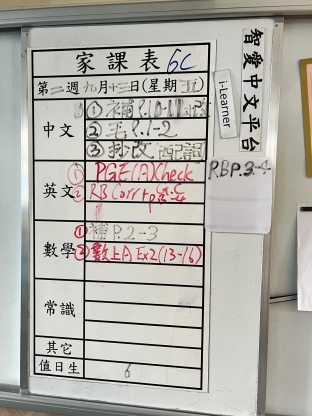 家課表 6C
第二週九月十三日(星期五)
中文
① 補P.10-11
② 毛P.1-2
③ 抄改
英文
① PGE(A)Check
② RB Corr + P
數學
① 補P.2-3
② 數上A Ex2(13-16)
常識
其它
值日生 6
智愛中文平台
i-Learner
RBP.3-4